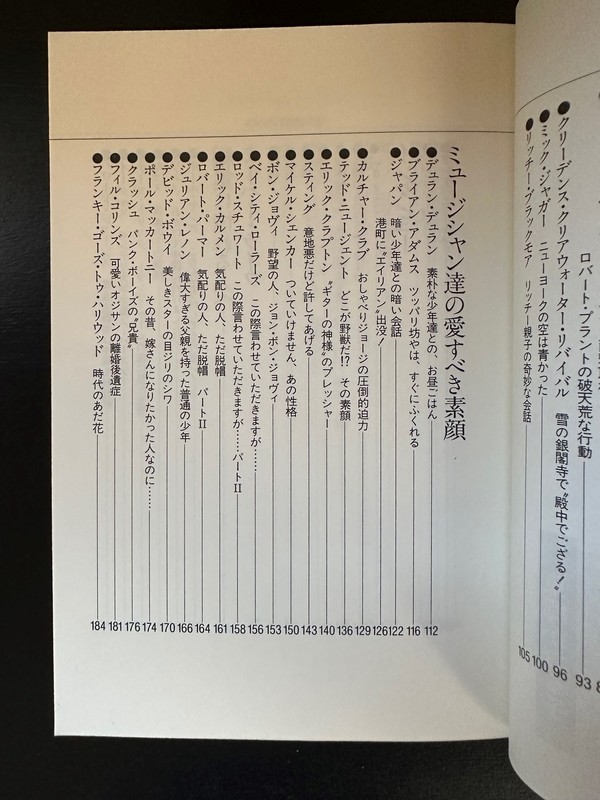 ロバート・プラントの破天荒な行動 93
●クリーデンス・クリアウォーター・リバイバル 雪の銀閣寺で〝殿中でござる!〟 96
●ミック・ジャガー ニューヨークの空は青かった 100
●リッチー・ブラックモア リッチー親子の奇妙な会話 105
ミュージシャン達の愛すべき素顔
●デュラン・デュラン 素朴な少年達との、お昼ごはん 112
●ブライアン・アダムス ツッパリ坊やは、すぐにふくれる 116
●ジャパン 暗い少年達との暗い会話 122
港町に〝エイリアン〟出没! 126
●カルチャー・クラブ おしゃべりジョージの圧倒的迫力 129
●テッド・ニュージェント どこが野獣だ!? その素顔 136
●エリック・クラプトン 〝ギターの神様〟のプレッシャー 140
●スティング 意地悪だけど許してあげる 143
●マイケル・シェンカー ついていけません、あの性格 150
●ボン・ジョヴィ 野望の人、ジョン・ボン・ジョヴィ 153
●ベイ・シティ・ローラーズ この際言わせていただきますが…… 156
●ロッド・スチュワート この際言わせていただきますが……パートⅡ 158
●エリック・カルメン 気配りの人、ただ脱帽 161
●ロバート・パーマー 気配りの人、ただ脱帽 パートⅡ 164
●ジュリアン・レノン 偉大すぎる父親を持った普通の少年 166
●デビッド・ボウイ 美しきスターの目ジリのシワ 170
●ポール・マッカートニー その昔、嫁さんになりたかった人なのに…… 174
●クラッシュ パンク・ボーイズの〝兄貴〟 176
●フィル・コリンズ 可愛いオジサンの離婚後遺症 181
●フランキー・ゴーズ・トゥ・ハリウッド 時代のあだ花 184